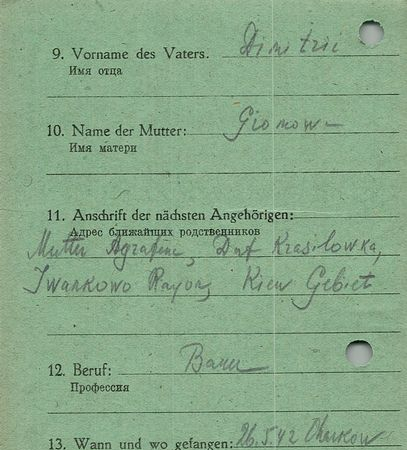 9. Vorname des Vaters. Dimitri
Имя отца
10. Name der Mutter:
Имя матери
11. Anschrift der nächsten Angehörigen:
Адрес ближайших родственников
Mutter Agrafine, Dorf Krasilowka,
Iwankowo Rayong Kiew Gebiet
12. Beruf: Bauer
Профессия
13. Wann und wo gefangen: 26.5.42 Charkow